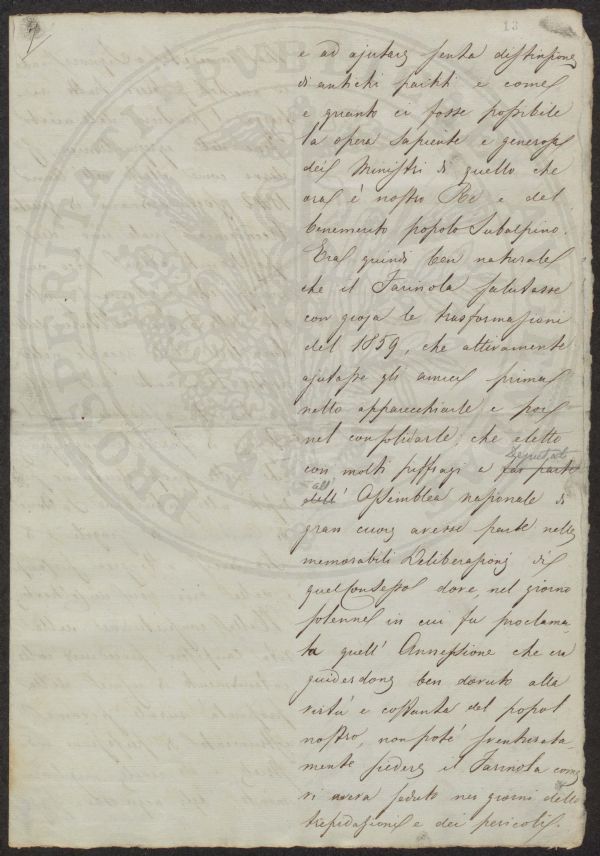 13
e ad ajutare senza distinzione
di antichi partiti e come
e quanto ci fosse possibile
la opera sapiente e generosa
dei Ministri di quello che
ora è nostro Re e del
benemerito popolo Subalpino.
Era quindi ben naturale
che il Farinola salutasse
con gioja le trasformazioni
del 1859, che attivamente
ajutasse gli amici prima
nello apparecchiarle e poi
nel consolidarle, che eletto
Deputato
con molti suffragi a far parte
all'
dell' Assemblea nazionale di
gran cuore avesse parte nelle
memorabili Deliberazioni di
quel Consesso dove nel giorno
solenne in cui fu proclama-
ta quell' Annessione che era
guiderdone ben dovuto alla
virtù e costanza del popol
nostro, non poté sventurata-
mente sedere il Farinola come
vi aveva seduto nei giorni delle
trepidazioni e dei pericoli.
PROSPERITATI